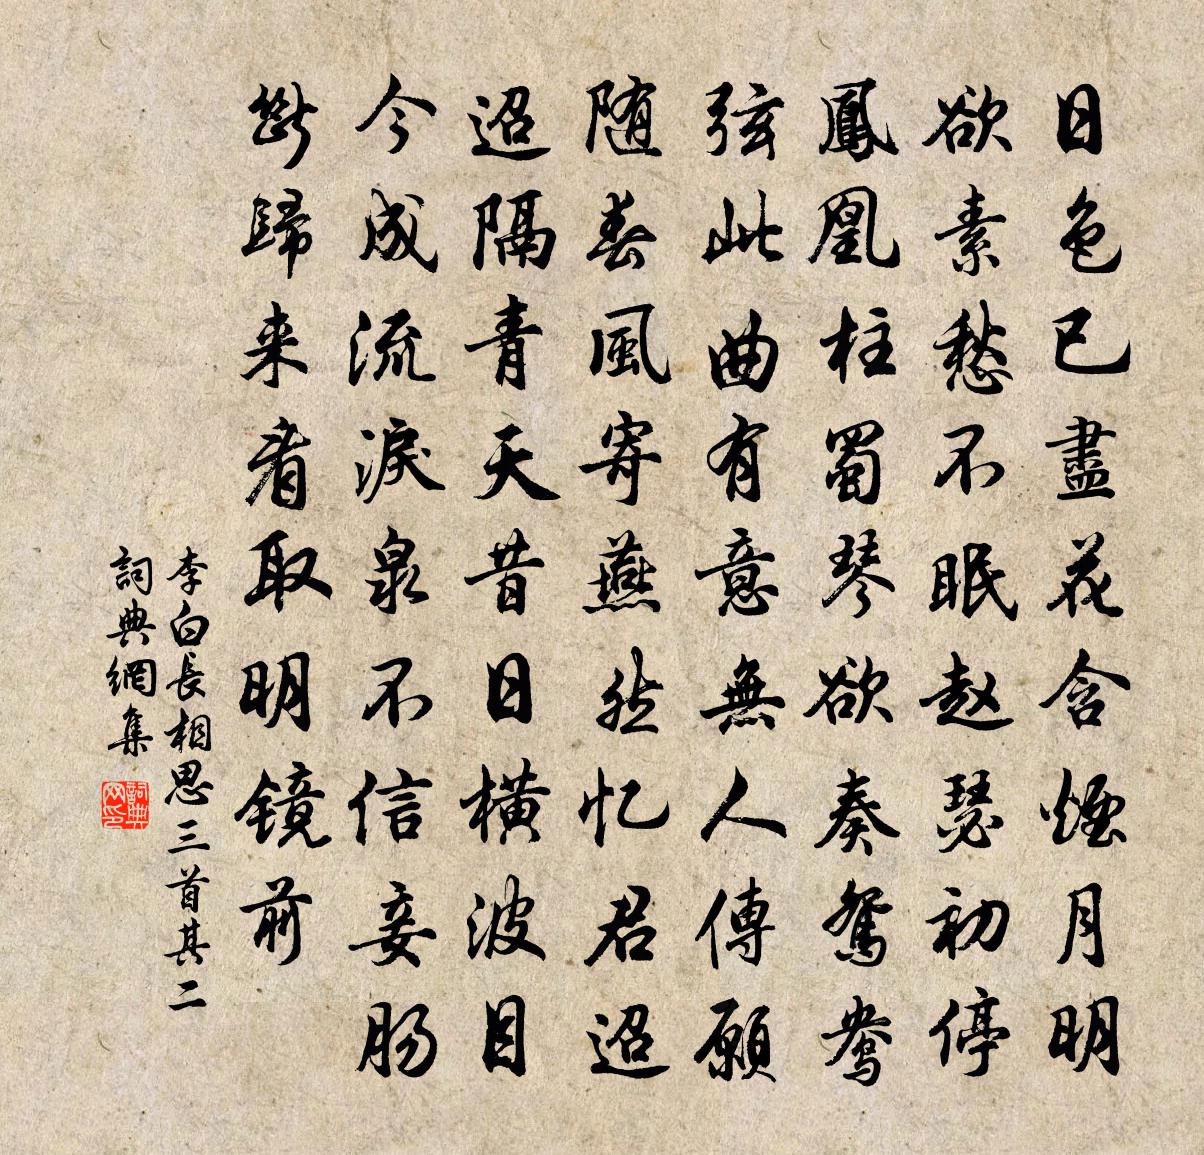 日色已盡花含煙月明
欲素愁不眠赵瑟初停
鳳凰柱蜀琴欲奏鴛鴦
弦此曲有意無人傳願
随春風寄燕然忆君迢
迢隔青天昔日横波目
今成流淚泉不信妾肠
斷歸来看取明镜前
李白長相思三首其二
詞典網集
詞典网印